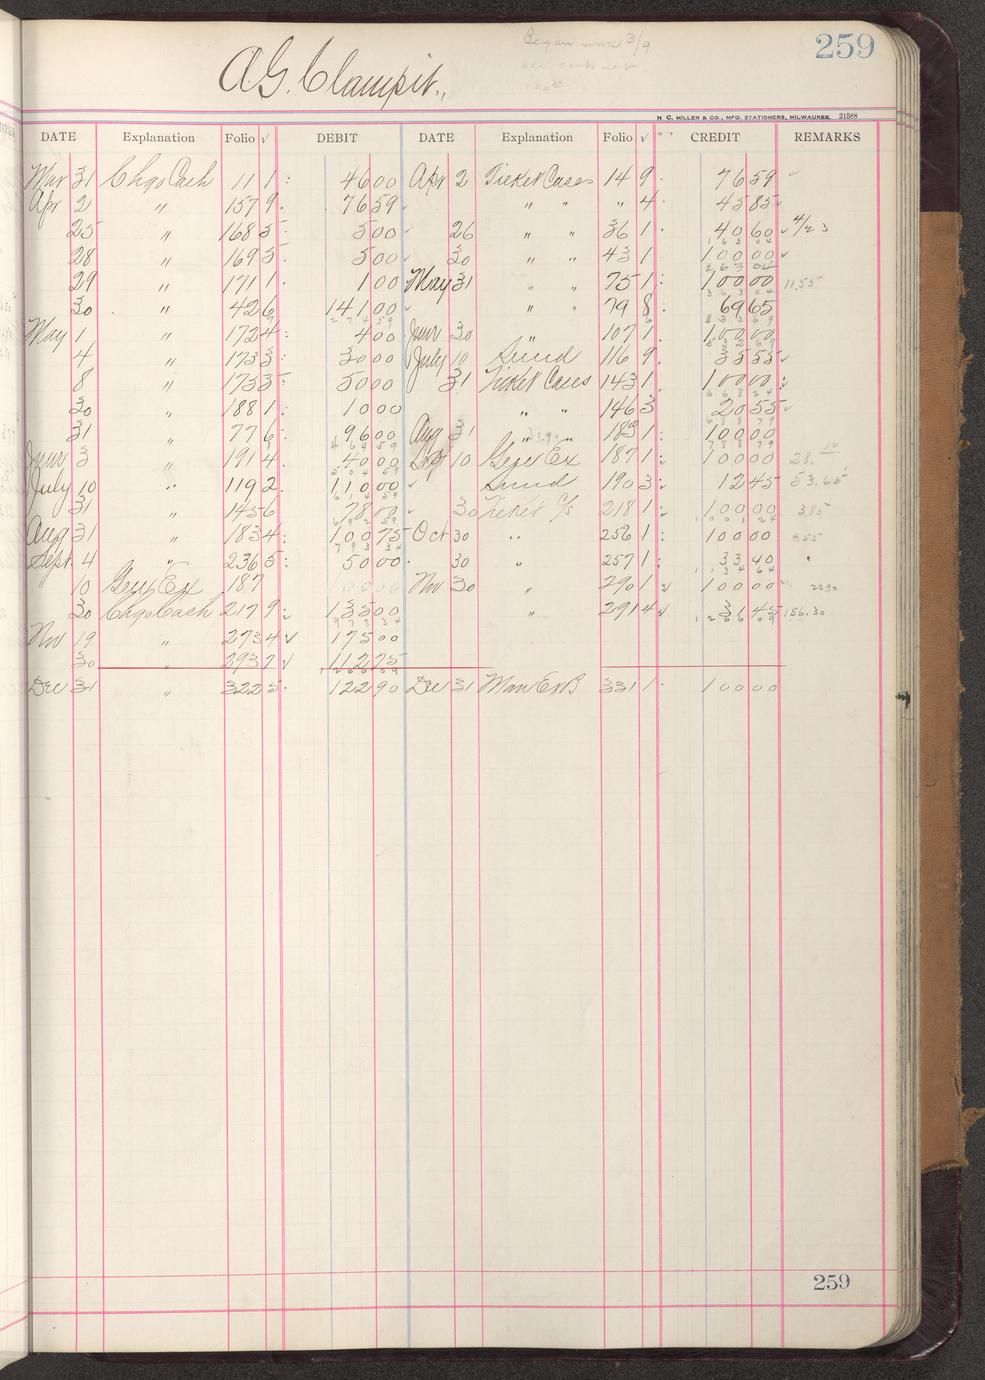 Began work 3/9
259
A.G. Clampit.,
H. C. MILLER & CO., MFG. STATIONERS, MILWAUKEE. 21588
DATE Explanation Folio √ DEBIT DATE Explanation Folio √ CREDIT REMARKS
Mar 31 Chgo Cash 11 1 46 00 Apr 2 Ticket Cases 14 9 76 59
Apr 2 " 157 9 76 59 " " " 4 45 85
25 " 168 5 5 00 26 " " 36 1 40 60 4/23
28 " 169 5 5 00 30 " " 43 1 100 00
29 " 171 1 1 00 May 31 " " 75 1 100 00 11.55
30 " 42 6 141 00 " " 79 8 69 65
May 1 " 172 4 4 00 June 30 " " 107 1 100 00
4 " 173 3 30 00 July 10 Sund 116 9 35 55
8 " 173 5 50 00 31 Ticket Cases 143 1 100 00
30 " 188 1 10 00 " " 146 3 20 55
31 " 77 6 96 00 Aug 31 " " 183 1 100 00
June 3 " 191 4 40 00 Sept 10 Genl Ex 187 1 100 00 28.
July 10 " 119 2 110 00 Sund 190 3 12 45 53.65
31 " 145 6 78 00 30 Ticket C/s 218 1 100 00 3.85
Aug 31 " 183 4 100 75 Oct 30 " 256 1 100 00
Sept. 4 " 236 5 50 00 30 " 257 1 33 40
10 Genl Ex 187 Nov 30 " 290 1 √ 100 00 22.90
30 Chgo Cash 217 9 135 00 " 291 4 √ 31 45 156.30
Nov 19 " 273 4 √ 175 00
30 " 293 7 √ 112 75
Dec 31 " 322 5 122 90 Dec 31 Man Ex B 331 1 100 00
259